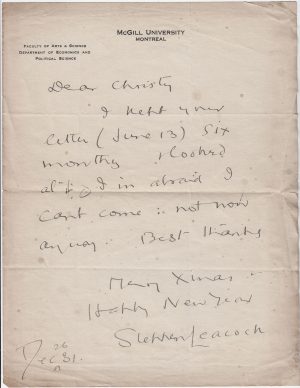 McGill University
Montreal
Faculty of Arts & Science
Department of Economics and
Political Science
Dear Christy
I kept your
letter (June 13) six
months & looked
at it & I'm afraid I
can't come : not now
anyway. Best thanks
Merry Xmas &
Happy New Year
Stephen Leacock
Dec 26
31